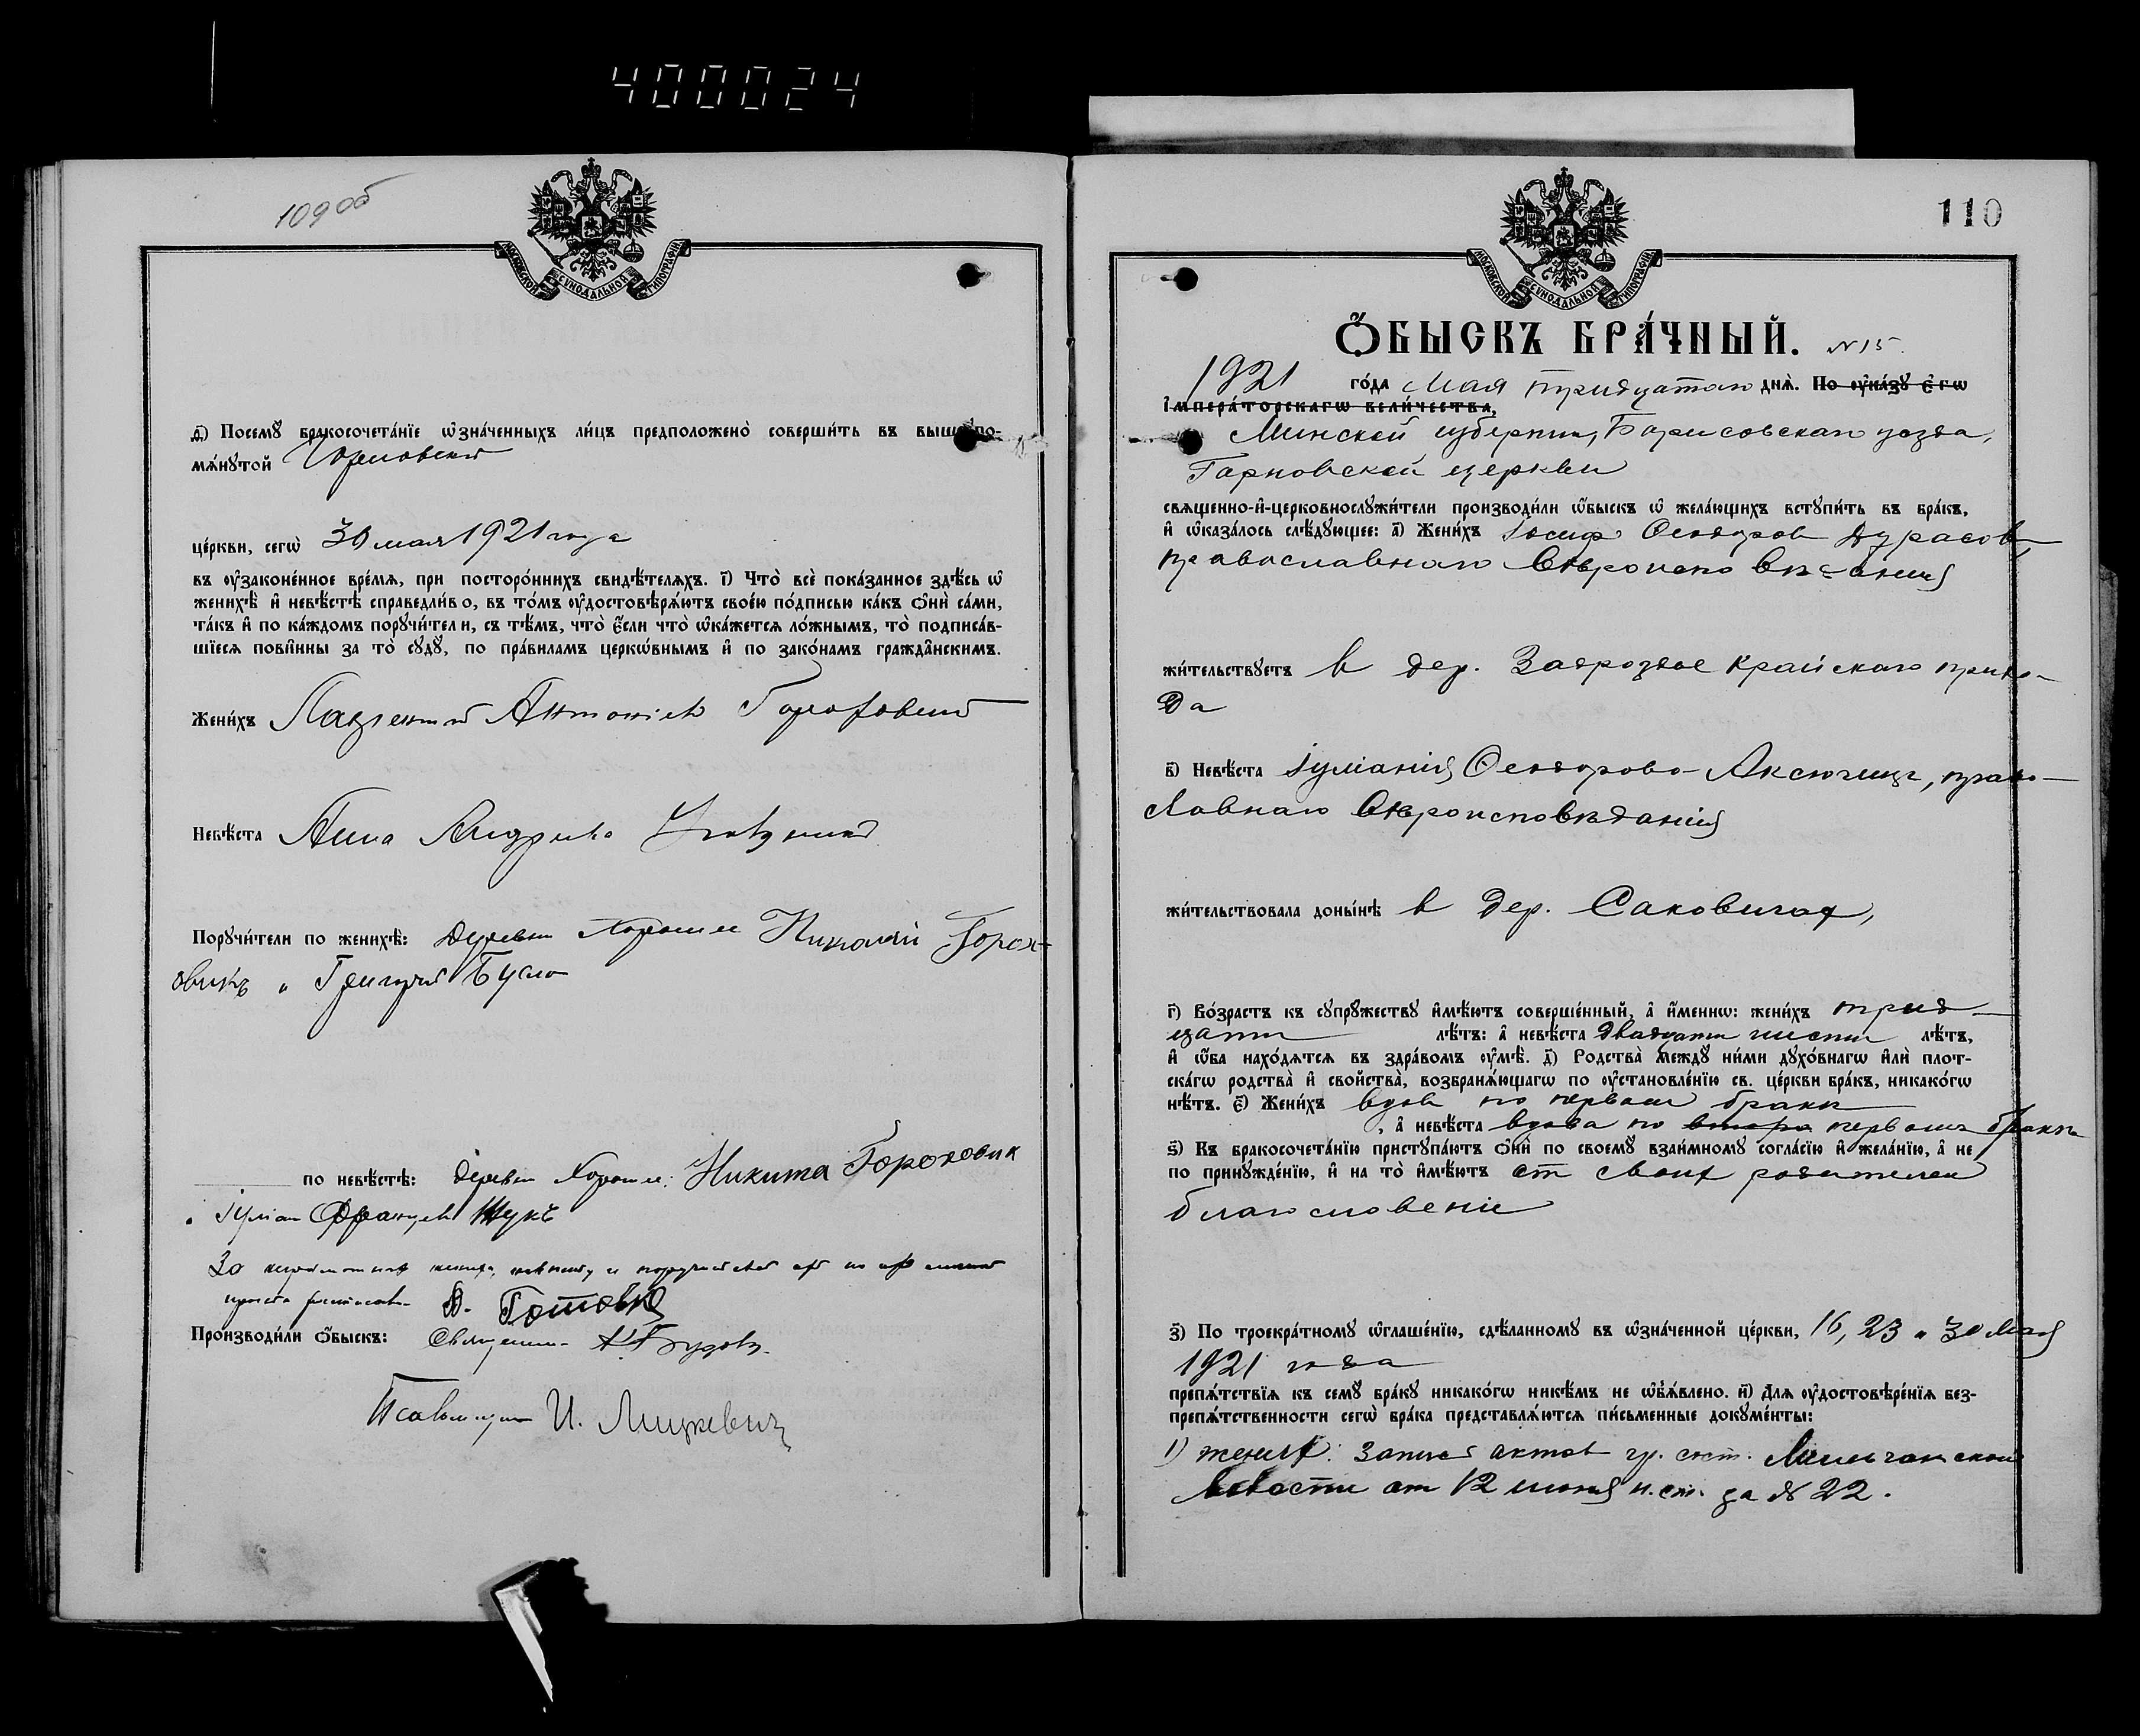 400024
109 об
МОСКОВСКОЙ СУНОДАЛЬНОЙ ТИПОГРАФІИ
д҃) Посемꙋ̀ бракосочета́нїе ѡ҆зна́ченныхъ ли́цъ предположено̀ соверши́ть въ вышепо-
мѧ́нꙋтой
це́ркви, сегѡ̀ 30 мая 1921 года
въ ᲂу҆законе́нное вре́мѧ, при посторо́ннихъ свидѣ́телѧхъ. і҃) Что̀ всѐ пока́занное здѣ́сь ѡ҆
женихѣ̀ и҆ невѣ́стѣ справедли́во, въ то́мъ ᲂу҆достовѣрѧ́ютъ свое́ю по́дписью ка́къ ѻ҆нѝ са́ми,
та́къ и҆ по ка́ждомъ порꙋчи́тели, съ тѣ́мъ, что̀ є҆́сли что̀ ѡ҆ка́жетсѧ ло́жнымъ, то̀ подписа́в-
шїесѧ пови́нны за то̀ сꙋдꙋ̀, по пра́виламъ церкѡ́внымъ и҆ по зако́намъ гражда̑нскимъ.
Жени́хъ Лаврентий Антоніев Гороховик
Невѣ́ста Анна Андреева
Порꙋчи́тели по женихѣ̀: Деревни Хорошее Николай Горох-
овикъ и Григорий Бусло
по невѣ́стѣ: деревни Хорошее: Никита Гороховик
и Іуліан Францев Жукъ
За неграмотных жениха, невесту и поручителей
А. Готовко
Производи́ли ѻ҆́быскъ: Священник
Псаломщик И. Мицкевич
110
МОСКОВСКОЙ СУНОДАЛЬНОЙ ТИПОГРАФІИ
Ѻ҆́БЫСКЪ БРА́ЧНЫЙ. № 15.
1921 го́да Мая тридцатаго днѧ̀. По ᲂу҆ка́зꙋ є҆гѡ̀
і҆мпера́торскагѡ вели́чества,
Минской губернии, Борисовскаго уезда,
церкви
свѧщенно-и҆-церковнослꙋжи́тели производи́ли ѡ҆́быскъ ѡ҆ жела́ющихъ встꙋпи́ть въ бра́къ,
и҆ ѡ҆каза́лось слѣ́дꙋющее: а҃) Жени́хъ Іосиф Ѳеодоров Дурасов,
православнаго
жи́тельствꙋетъ в дер. Задроздье Крайскаго прихо-
да
в҃) Невѣ́ста Іуліанія Ѳеодорова Аксючиц, право-
славнаго вѣроисповѣданія
жи́тельствовала доны́нѣ в дер. Саковичах,
г҃) Во́зрастъ къ сꙋпрꙋ́жествꙋ и҆мѣ́ютъ соверше́нный, а҆ и҆́меннѡ: жени́хъ трид-
цати лѣ́тъ: а҆ невѣ́ста двадцати шести лѣ́тъ,
и҆ ѻ҆́ба нахо́дѧтсѧ въ здра́вомъ ᲂу҆мѣ̀. д҃) Родства̀ междꙋ̀ ни́ми дꙋхо́внагѡ и҆лѝ плот-
ска́гѡ родства̀ и҆ свойства̀, возбранѧ́ющагѡ по ᲂу҆становле́нїю св. це́ркви бра́къ, никако́гѡ
нѣ́тъ. є҃) Жени́хъ вдов по первом браке
, а҆ невѣ́ста вдова по второ первом браке
ѕ҃) Къ бракосочета́нїю пристꙋпа́ютъ ѻ҆нѝ по своемꙋ̀ взаи́мномꙋ согла́сїю и҆ жела́нїю, а҆ не
по принꙋжде́нїю, и҆ на то̀ и҆мѣ́ютъ от своих родителей
благословеніе
з҃) По троекра́тномꙋ ѡ҆глаше́нїю, сдѣ́ланномꙋ въ ѡ҆зна́ченной це́ркви, 16, 23 и 30 Мая
1921 года
препѧ́тствїѧ къ семꙋ̀ бра́кꙋ никако́гѡ никѣ́мъ не ѡ҆б̾ѧ́влено. и҃) Длѧ ᲂу҆достовѣре́нїѧ без-
препѧ́тственности сегѡ̀ бра́ка представлѧ́ютсѧ пи́сьменные докꙋме́нты:
1) жених: запись актов гр. сост.
волости от 12 июня н. ст. за № 22.